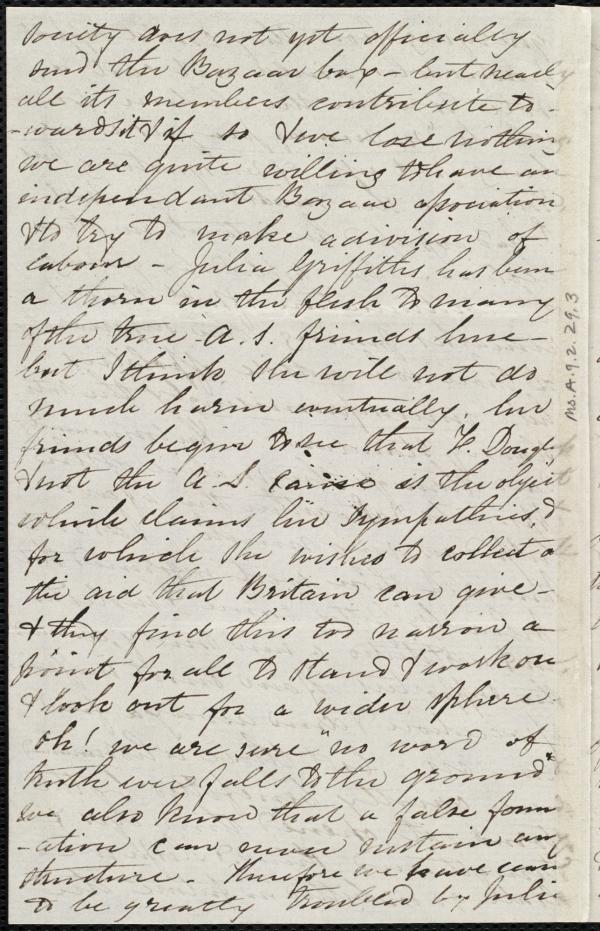 Society does not yet officially
send the Bazaar box - but nearly
all its members contribute to-
-wards it & if so & we lose nothing
we are quite willing to have an
independant Bazaar association
& to try to make a division of
labour - Julia Griffiths has been
a thorn in the flesh to many
of the true A. S. friends here -
but I think she will not do
much harm eventually. her
friends begin to see that F. Douglass
& not the A. S. Cause is the object
which claims her sympathies, &
for which she wishes to collect a
the aid that Britain can give -
& they find this too narrow a
point for all to stand & work on
& look out for a wider sphere.
Oh! we are sure "no word of
truth ever falls to the ground"
we also know that a false foun
-ation can never sustain any
structure - therefore we have ceased
to be greatly troubled by Julia
Ms.A.9.2.29,3